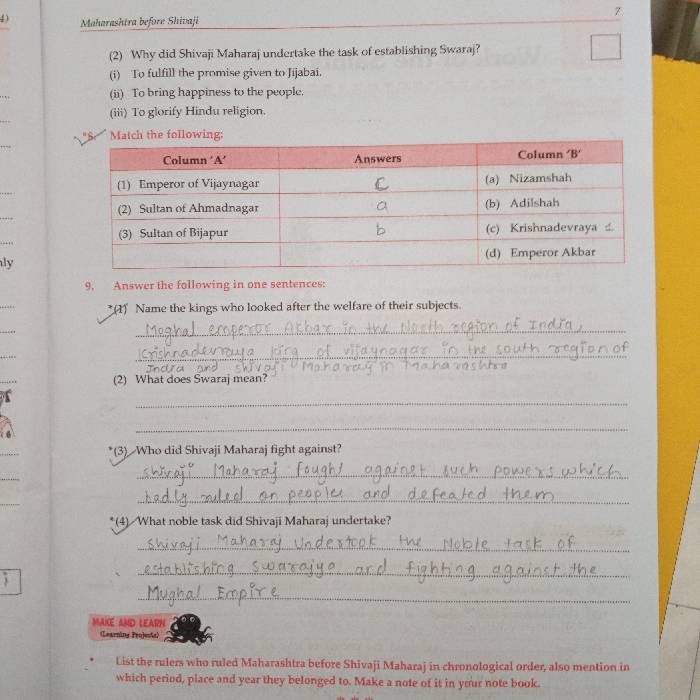 Maharashtra before Shivaji 7
(2) Why did Shivaji Maharaj undertake the task of establishing Swaraj?
(i) To fulfill the promise given to Jijabai.
(ii) To bring happiness to the people.
(iii) To glorify Hindu religion.
*8. Match the following:
Column 'A' Answers Column 'B'
(1) Emperor of Vijaynagar C (a) Nizamshah
(2) Sultan of Ahmadnagar a (b) Adilshah
(3) Sultan of Bijapur b (c) Krishnadevraya 1
(d) Emperor Akbar
9. Answer the following in one sentences:
*(1) Name the kings who looked after the welfare of their subjects.
Moghal emperor Akbar in the North region of India,
Krishnadevraya king of vijaynagar in the south region of
India and shivaji Maharaj in Maharashtra
(2) What does Swaraj mean?
*(3) Who did Shivaji Maharaj fight against?
shivaji Maharaj fought against such powers which
badly ruled on people and defeated them
*(4) What noble task did Shivaji Maharaj undertake?
Shivaji Maharaj Undertook the Noble task of
establishing swarajya and fighting against the
Mughal Empire
MAKE AND LEARN
(Learning Projects)
* List the rulers who ruled Maharashtra before Shivaji Maharaj in chronological order, also mention in
which period, place and year they belonged to. Make a note of it in your note book.
* * *